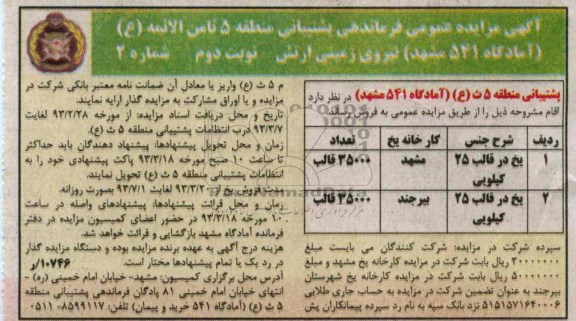 آگهی مزایده عمومی فرماندهی پشتیبانی منطقه ۵ ثامن الائمه (ع)
(آمادگاه ۵۴۱ مشهد) نیروی زمینی ارتش نوبت دوم شماره ۲
پشتیبانی منطقه ۵ ث (ع) (آمادگاه ۵۴۱ مشهد) در نظر دارد
اقلام مشروحه ذیل را از طریق مزایده عمومی به فروش رساند.
ردیف شرح جنس کارخانه یخ تعداد
۱ یخ در قالب ۲۵ کیلویی مشهد ۳۵۰۰۰ قالب
۲ یخ در قالب ۲۵ کیلویی بیرجند ۳۵۰۰۰ قالب
سپرده شرکت در مزایده: شرکت کنندگان می بایست مبلغ
ریال بابت شرکت در مزایده کارخانه یخ مشهد و مبلغ
ریال بابت شرکت در مزایده کارخانه یخ شهرستان
بیرجند به عنوان تضمین شرکت در مزایده به حساب جاری طلایی
نزد بانک سپه به نام رد سپرده پیمانکاران پش
م ۵ ث (ع) واریز یا معادل آن ضمانت نامه معتبر بانکی شرکت در
مزایده و یا اوراق مشارکت به مزایده گذار ارایه نمایند.
تاریخ و محل دریافت اسناد مزایده: از مورخه ۹۳/۲/۲۸ لغایت
۹۳/۳/۷ درب انتظامات پشتیبانی منطقه ۵ ث (ع).
زمان و محل تحویل پیشنهادها: پیشنهاد دهندگان باید حداکثر
تا ساعت ۱۰ صبح مورخه ۹۳/۳/۱۸ پاکت پیشنهادی خود را به
انتظامات پشتیبانی منطقه ۵ ث (ع) تحویل نمایند.
مدت فروش یخ از ۹۳/۳/۲۰ لغایت ۹۳/۷/۱ بصورت روزانه.
زمان و محل قرائت پیشنهادها: پیشنهادهای واصله در ساعت
۱۰ مورخه ۹۳/۳/۱۸ در حضور اعضای کمیسیون مزایده در دفتر
فرمانده آمادگاه مشهد بازگشایی و قرائت خواهد شد.
هزینه درج آگهی به عهده برنده مزایده بوده و دستگاه مزایده گذار
در رد یک یا تمام پیشنهادها مختار است. ۱۰۷۴۶/ر
آدرس محل برگزاری کمیسیون: مشهد- خیابان امام خمینی (ره) -
انتهای خیابان امام خمینی ۸۱ پادگان فرماندهی پشتیبانی منطقه
۵ ث (ع) (آمادگاه ۵۴۱ خرید و پیمان) تلفن: ۸۵۹۹۱۱۷-۰۵۱۱